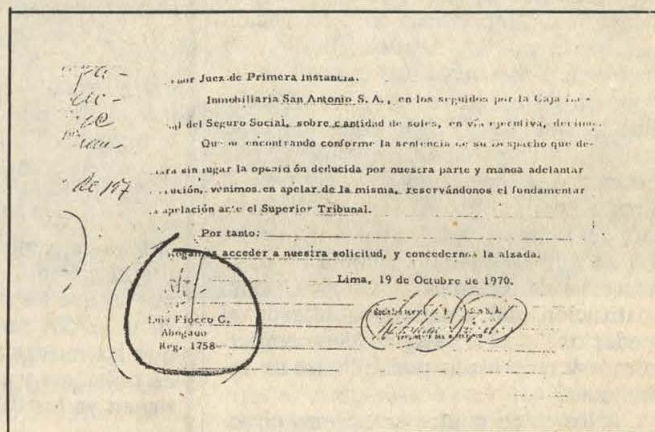 Juez de Primera Instancia.
Inmobiliaria San Antonio S. A., en los seguidos por la Caja
del Seguro Social, sobre cantidad de soles, en vía ejecutiva, decimos
Que no encontrando conforme la sentencia de su Despacho que de-
sin lugar la oposición deducida por nuestra parte y manda adelantar
venimos en apelar de la misma, reservándonos el fundamentar
apelación ante el Superior Tribunal.
De 197
Por tanto:
acceder a nuestra solicitud, y concedernos la alzada.
Lima, 19 de Octubre de 1970.
Luis Fiocco C.
Abogado
Reg. 1758